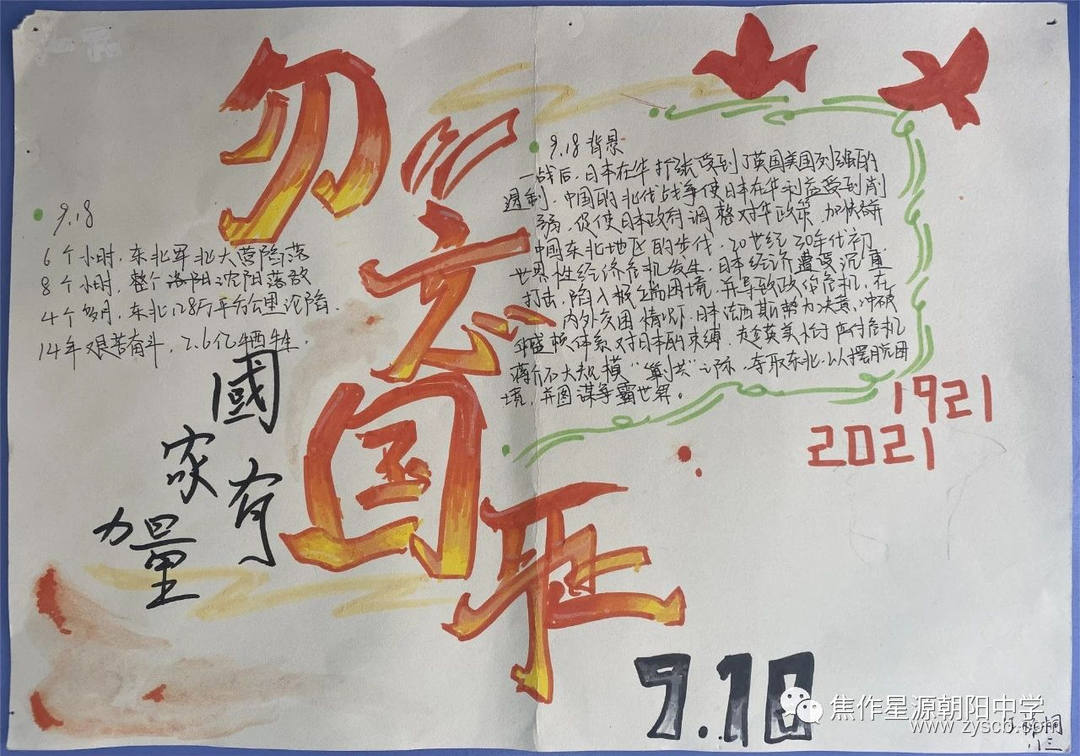 勿忘国耻
9.18
6个小时，东北军北大营陷落
8个小时，整个沈阳落敌
4个多月，东北128万平方公里沦陷.
14年艰苦奋斗，牺牲.
國家有力量
9.18背景
一战后，日本在华扩张受到了英国美国列强的
遏制，中国的北伐战争使日本在华利益受到削
弱，促使日本政府调整对华政策，加快侵
中国东北地区的步伐，20世纪30年代初，
世界性经济危机发生，日本经济遭受沉重
打击，陷入极端困境，并导致政治危机，在
内外交困情况下，日本法西斯势力决意，冲破
华盛顿体系对日本的束缚，趁英美忙于应付危机
蒋介石大规模“剿共”之际，夺取东北，以摆脱困
境，并图谋争霸世界。
1921
2021
9.18
焦作星源朝阳中学
www.zyscb.com